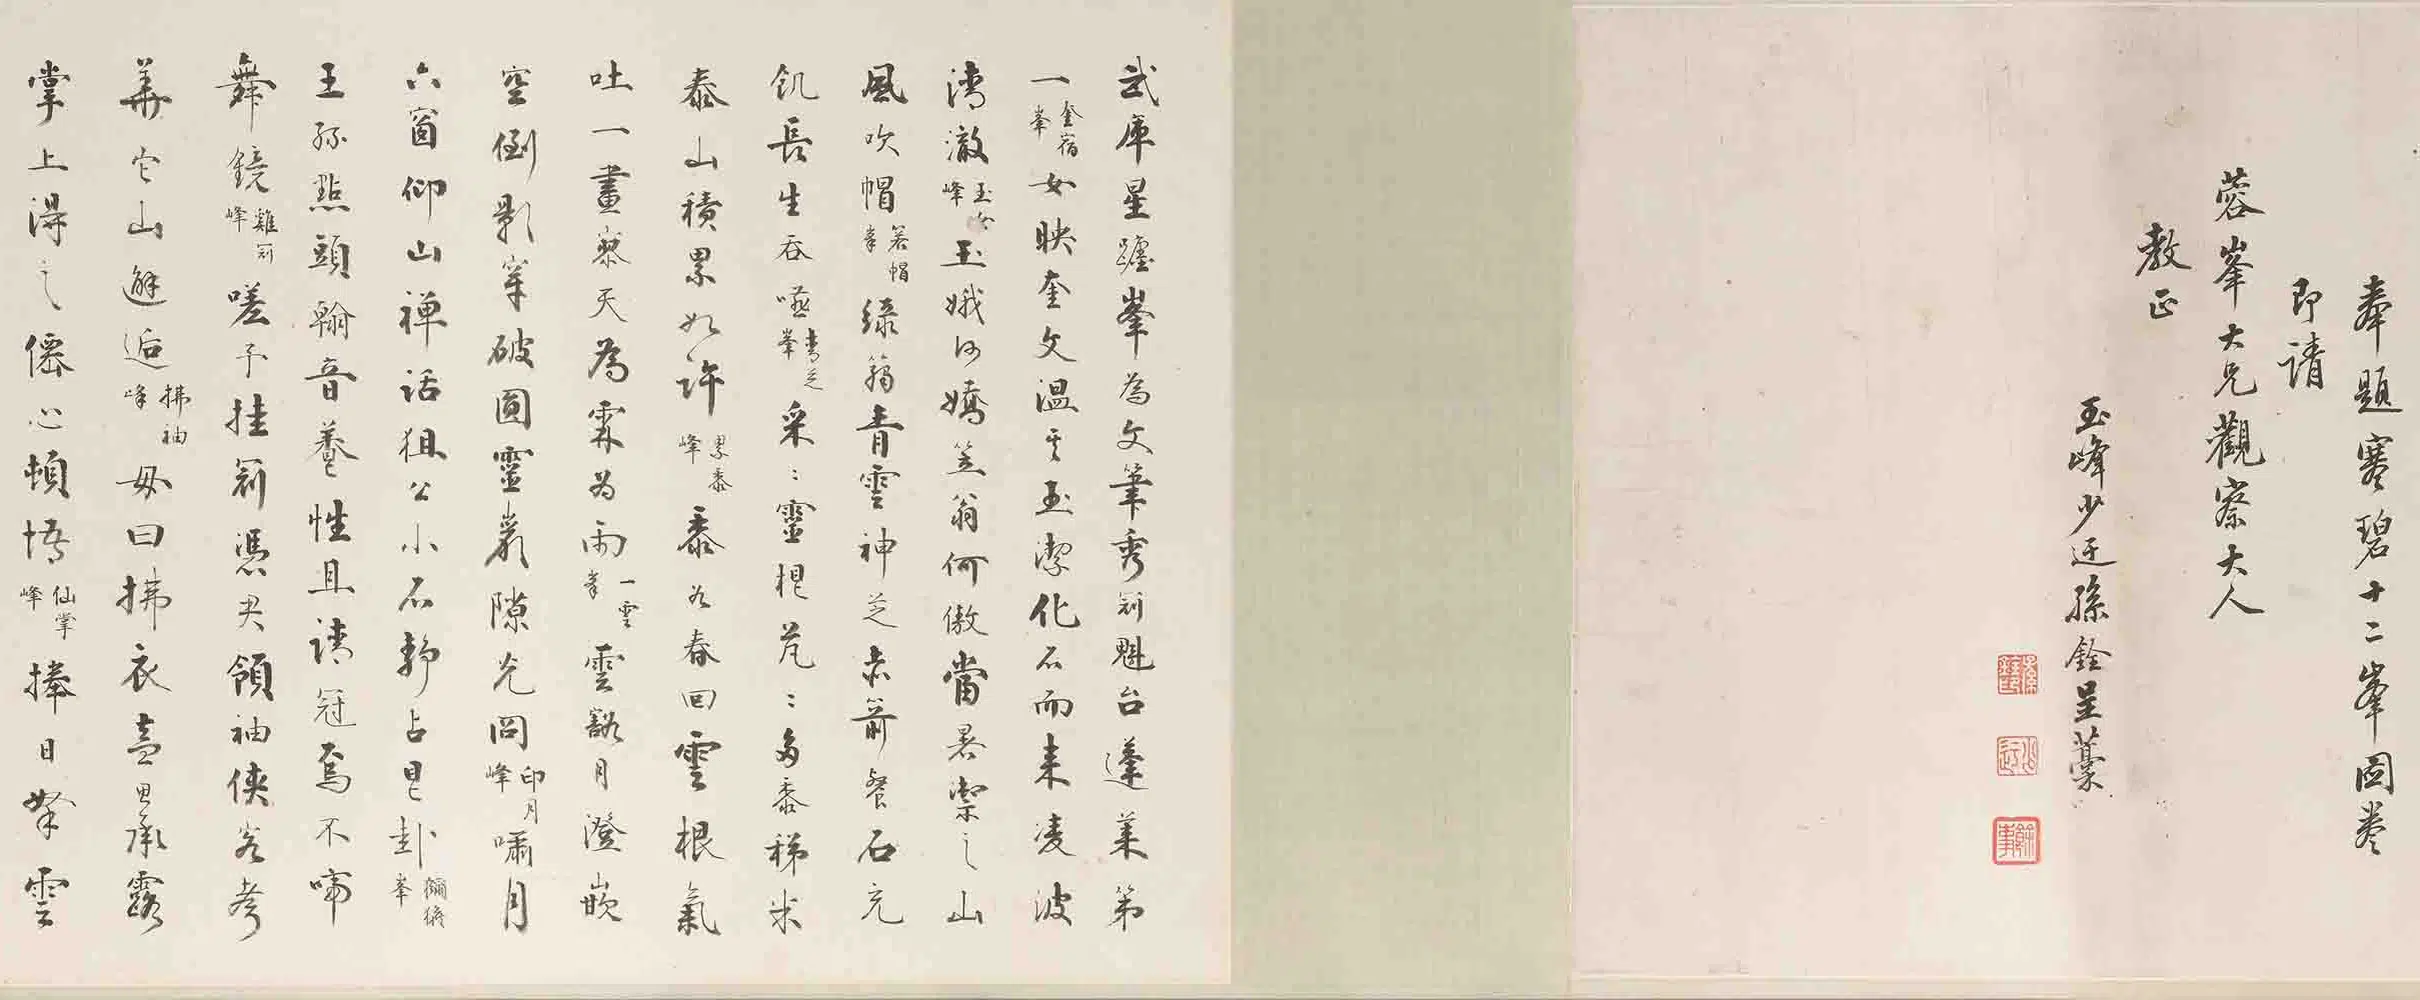 奉題寒碧十二峯圖卷
即請
蓉峯大兄觀察大人
教正
玉峰少迂孫銓呈藁
武庫星躔峯為文筆秀冠魁台蓬萊第
一奎宿峯女映奎文溫其玉潔化石而來凌波
濤澈玉女峰玉娥何嬌笠翁何傲當暑禦之山
風吹帽箬帽峯綠篛青雲神芝赤箭餐石充
飢長生吞嚥青芝峯采采靈根芃芃多黍稊米
泰山積累如許累黍峰黍谷春回雲根氣
吐一畫參天為霖為雨一雲峯雲谿月澄嵌
空倒影峯破圓靈巖隙光冏印月峰嘯月
六窗仰山禪話狙公小石靜占艮卦獼猴峯
王孫點頭翰音養性且請冠焉不啼
舞鏡雞冠峰嗟予挂冠憑君領袖俠客考
槃它山邂逅拂袖峰毋曰拂衣盍思承露
掌上得之僊心頓悟仙掌峰捧日拏雲